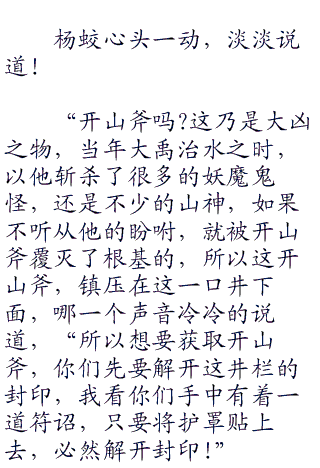 杨蛟心头一动，淡淡说
道！
“开山斧吗?这乃是大凶
之物，当年大禹治水之时，
以他斩杀了很多的妖魔鬼
怪，还是不少的山神，如果
不听从他的盼咐，就被开山
斧覆灭了根基的，所以这开
山斧，镇压在这一口井下
面，哪一个声音冷冷的说
道，“所以想要获取开山
斧，你们先要解开这井栏的
封印，我看你们手中有着一
道符诏，只要将护罩贴上
去，必然解开封印！”